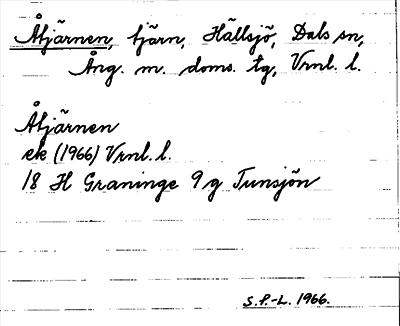 Åtjärnen, tjärn, Hällsjö, Dals sn,
Ång. m. doms. tg, Vrnl. l.
Åtjärnen
ek (1966) Vrnl. l.
18 H Graninge 9 g Tunsjön
S.P.-L. 1966.